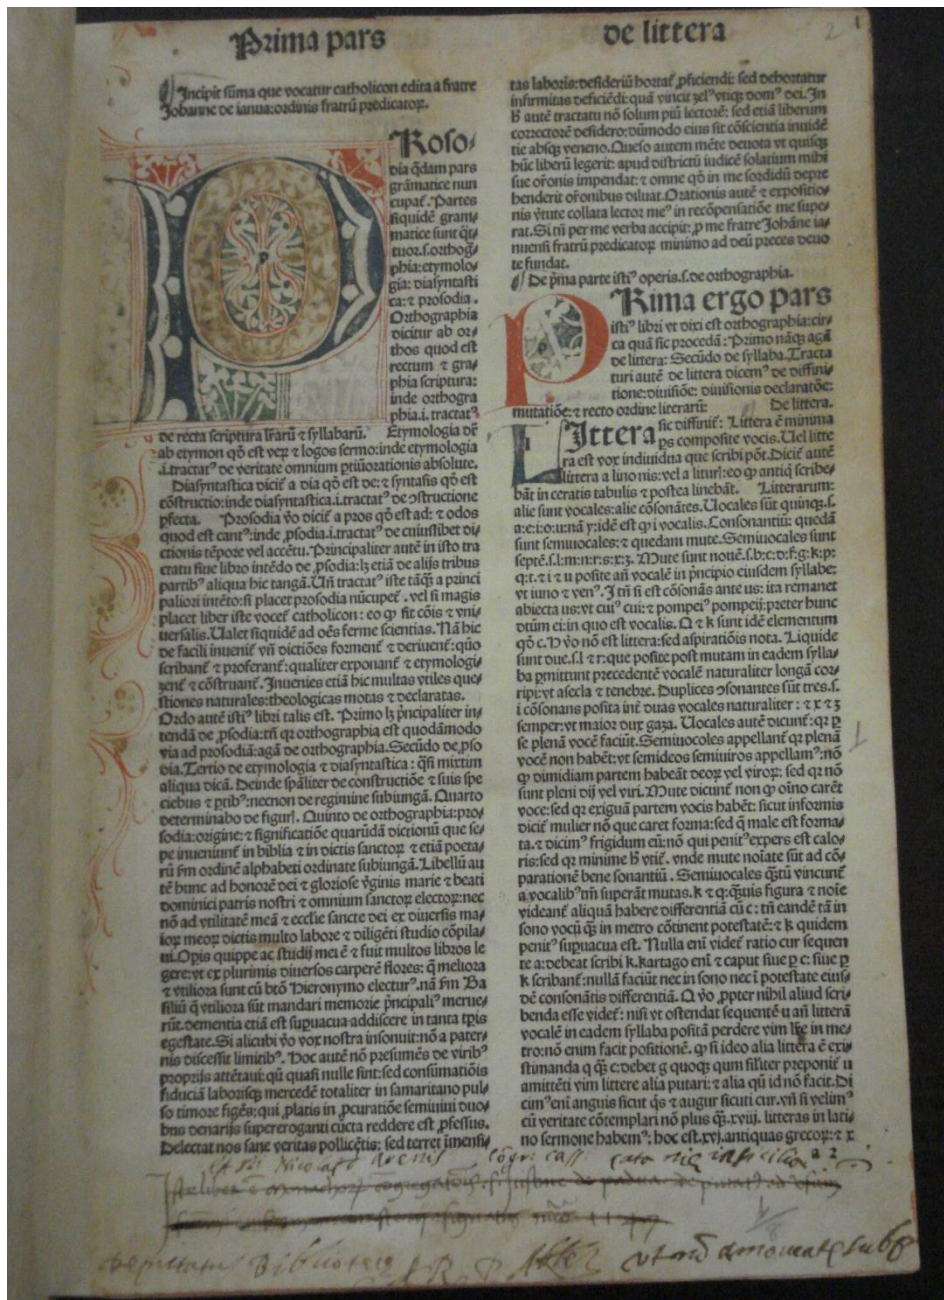 Prima pars
de littera
2
1
Incipit sūma que vocatur catholicon edita a fratre
Johanne de ianua: ordinis fratrū predicatoꝝ.
Rosodia
q̄dam pars
grāmatice nun
cupat᷑. Partes
siquidē gram⸗
matice sunt q̄t
tuor.s.orthog̾⸗
phia: etymolo⸗
gia: diasyntasti
ca: ⁊ prosodia.
Orthographia
dicitur ab or⸗
thos quod est
rectum ⁊ gra⸗
phia scriptura:
inde orthogra
phia.i.tractatꝰ
de recta scriptura lr̄arū ⁊ syllabarū. Etymologia dr̄
ab etymon qd̄ est veꝝ ⁊ logos sermo: inde etymologia
.i.tractatꝰ de veritate omnium
Diasyntastica dicit᷑ a dia qd̄ est de: ⁊ syntasis qd̄ est
cōstructio: inde diasyntastica.i.tractatꝰ de ↄstructione
ꝑfecta. Prosodia v̄o dicit᷑ a pros qd̄ est ad: ⁊ odos
quod est cantꝰ: inde ꝓsodia.i.tractatꝰ de cuiuslibet di⸗
ctionis tēpore vel accētu. Principaliter autē in isto tra
ctatu siue libro intēdo de ꝓsodia: lꝫ etiā de alijs tribus
partibꝰ aliqua hic tangā. Un̄ tractatꝰ iste tāqꝫ a princi
paliori intēto: si placet prosodia nūcupet᷑. vel si magis
placet liber iste vocet᷑ catholicon: eo ꝙ sit cōis ⁊ vni⸗
uersalis. Ualet siquidē ad oēs ferme scientias. Nā hic
de facili inuenit᷑ vn̄ dictiōes forment᷑ ⁊ deriuent᷑: quō
scribant᷑ ⁊ proferant᷑: qualiter exponant᷑ ⁊ etymologi⸗
zent᷑ ⁊ cōstruant᷑. Inuenies etiā hic multas vtiles que⸗
stiones naturales: theologicas motas ⁊ declaratas.
Ordo autē istiꝰ libri talis est. Primo lꝫ pͥncipaliter in⸗
tendā de ꝓsodia: tn̄ qꝛ orthographia est quodāmodo
via ad prosodiā: agā de orthographia. Secūdo de ꝓso
dia. Tertio de etymologia ⁊ diasyntastica: qͣsi mixtim
aliqua dicā. Deinde spāliter de constructiōe ⁊ suis spe
ciebus ⁊ ꝑtibꝰ: necnon de regimine subiungā. Quarto
determinabo de figuꝭ. Quinto de orthographia: pro⸗
sodia: origine: ⁊ significatiōe quarūdā dictionū que se⸗
pe inueniunt᷑ in biblia ⁊ in dictis sanctoꝝ ⁊ etiā poeta⸗
rū ẜm ordinē alphabeti ordinate subiungā. Libellū au
tē hunc ad honorē dei ⁊ gloriose v̓ginis marie ⁊ beati
dominici patris nostri ⁊ omnium sanctoꝝ electoꝝ: nec
nō ad vtilitatē meā ⁊ ecclīe sancte dei ex diuersis ma⸗
ioꝝ meoꝝ dictis multo labore ⁊ diligēti studio cōpila⸗
ui. Opꝭ quippe ac studij mei ē ⁊ fuit multos libros le
gere: vt ex plurimis diuersos carperē flores: q̄ meliora
⁊ vtiliora sunt cū btō Hieronymo electurꝰ. nā ẜm Ba
siliū q̄ vtiliora sūt mandari memorie pͥncipaliꝰ merue⸗
rūt. dementia etiā est suꝑuacua addiscere in tanta tꝑis
egestate. Si alicubi v̄o vox nostra insonuit: nō a pater⸗
nis discessit limitibꝰ. Hoc autē nō presumēs de viribꝰ
proprijs attētaui: qū quasi nulle sint: sed consumatiōis
fiduciā laborisqꝫ mercedē totaliter in samaritano pul⸗
so timore figēs: qui ꝓlatis in ꝓcuratiōe semiuiui duo⸗
bus denarijs supereroganti cūcta reddere est ꝓfessus.
Delectat nos sane veritas pollicētis: sed terret īmensi⸗
tas laboris: desideriū hortat᷑ ꝓficiendi: sed dehortatur
infirmitas deficiēdi: quā vincit zelꝰ vtiqꝫ domꝰ dei. In
h̄ autē tractatu nō solum piū lectorē: sed etiā liberum
correctorē desidero: dūmodo eius sit cōscientia inuidē
tie absqꝫ veneno. Queso autem mēte deuota vt quisqꝫ
hūc liberū legerit: apud districtū iudicē solatium mihi
sue or̄onis impendat: ⁊ omne qd̄ in me sordidū depre
henderit or̄onibus diluat. Orationis autē ⁊ expositio⸗
nis v̓tute collata lector meꝰ in recōpensatiōe me supe⸗
rat. Si tn̄ per me verba accipit: ꝓ me fratre Johāne ia⸗
nuensi fratrū predicatoꝝ minimo ad deū preces deuo
te fundat.
De pͥma parte istiꝰ operis.s.de orthographia.
PRima ergo pars
istiꝰ libri vt dixi est orthographia: cir⸗
ca quā sic procedā: Primo nāqꝫ agā
de littera: Secūdo de syllaba. Tracta
turi autē de littera dicemꝰ de diffini⸗
tione: diuisiōe: diuisionis declaratōe:
mutatiōe: ⁊ recto ordine literarū: De littera.
LIttera sic diffinit᷑: Littera ē minima
ꝑs composite vocis. Uel litte
ra est vox indiuidua que scribi pōt. Dicit᷑ autē
littera a lino nis: vel a liturꝭ: eo ꝙ antiqͥ scribe⸗
bāt in ceratis tabulis ⁊ postea linebāt. Litterarum:
alie sunt vocales: alie cōsonātes. Uocales sūt quinqꝫ.s.
a:e:i:o:u: nā y: idē est ꝙ i vocalis. Consonantiū: quedā
sunt semiuocales: ⁊ quedam mute. Semiuocales sunt
septē.s.l:m:n:r:s:x:z. Mute sunt nouē.s.b:c:d:f:g:k:p:
q:t. ⁊ i ⁊ u posite an̄ vocalē in pͥncipio eiusdem syllabe:
vt iuno ⁊ venꝰ. I tn̄ si est cōsonās ante us: ita remanet
abiecta us: vt cuiꝰ cui: ⁊ pompeiꝰ pompeij: preter hunc
dtūm ei: in quo est vocalis. Q ⁊ k sunt idē elementum
qd̄ c. H v̄o nō est littera: sed aspiratiōis nota. Liquide
sunt due.s.l ⁊ r: que posite post mutam in eadem sylla⸗
ba ꝑmittunt precedentē vocalē naturaliter longā cor⸗
ripi: vt ascla ⁊ tenebre. Duplices ↄsonantes sūt tres.s.
i cōsonans posita int̓ duas vocales naturaliter: ⁊ x ⁊ z
semper: vt maior dux gaza. Uocales autē dicunt᷑: qꝛ ꝑ
se plenā vocē faciūt. Semiuocoles appellant᷑ qꝛ plenā
vocē non habēt: vt semideos semiuiros appellamꝰ: nō
ꝙ dimidiam partem habeāt deoꝝ vel viroꝝ: sed qꝛ nō
sunt pleni dij vel viri. Mute dicunt᷑ non ꝙ oīno carēt
voce: sed qꝛ exiguā partem vocis habēt: sicut informis
dicit᷑ mulier nō que caret forma: sed q̄ male est forma⸗
ta. ⁊ dicimꝰ frigidum eū: nō qui penitꝰ expers est calo⸗
ris: sed qꝛ minime h̄ vtit᷑. vnde mute noīate sūt ad cō⸗
parationē bene sonantiū. Semiuocales qͣꝫtū vincunt᷑
a vocalibꝰ tm̄ superāt mutas. k ⁊ q: qͣꝫuis figura ⁊ noīe
videant᷑ aliquā habere differentiā cū c: tn̄ eandē tā in
sono vocū qͣꝫ in metro cōtinent potestatē: ⁊ k quidem
penitꝰ suꝑuacua est. Nulla enī videt᷑ ratio cur sequen
te a: debeat scribi k. kartago enī ⁊ caput siue ꝑ c: siue ꝑ
k scribant᷑: nullā faciūt nec in sono nec ī potestate eius⸗
dē consonātis differentiā. Q v̄o ꝓpter nihil aliud scri⸗
benda esse videt᷑: nisi vt ostendat sequentē u an̄ litterā
vocalē in eadem syllaba positā perdere vim lr̄e in me⸗
tro: nō enim facit positionē. ꝙ si ideo alia littera ē exi⸗
stimanda q qͣꝫ c: debet g quoqꝫ cum sil̄iter preponit᷑ u
amittēti vim littere alia putari: ⁊ alia qū id nō facit. Di
cimꝰ enī anguis sicut qͥs ⁊ augur sicuti cur. vn̄ si velimꝰ
cū veritate cōtemplari nō plus qͣꝫ.xviij. litteras in lati⸗
no sermone habemꝰ: hoc est.xvj.antiquas grecoꝝ: ⁊ x
a 2